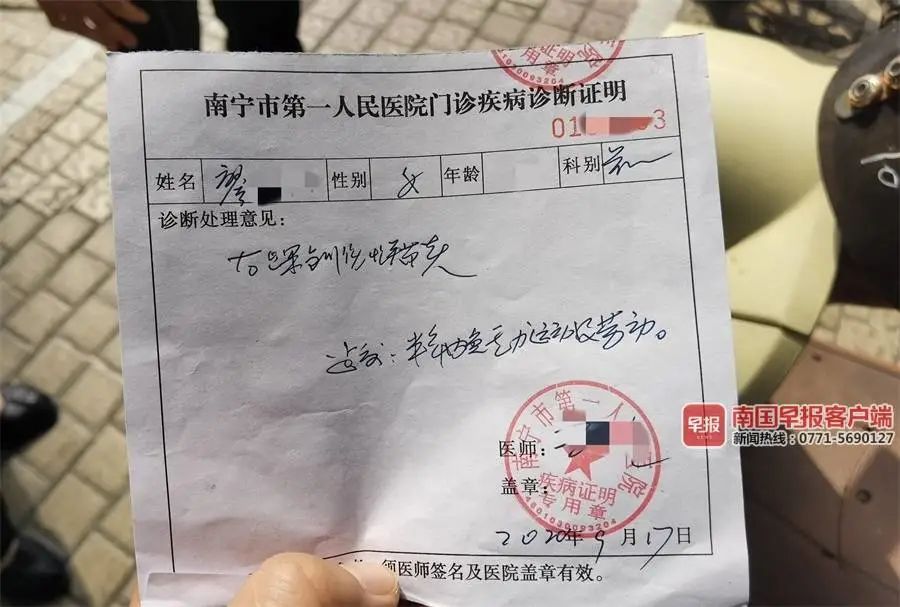 证明
专用章
4501030093204
南宁市第一人民医院门诊疾病诊断证明
01 3
姓名 廖 性别 女 年龄 科别
诊断处理意见：
右踝创伤性
建议：半年内免重力运动及劳动。
南宁市第一人 医院
医师：
疾病证明
盖章：
专用章
4501030093204
2020年9月17日
须医师签名及医院盖章有效。
早报
南国早报客户端
新闻热线：0771-5690127